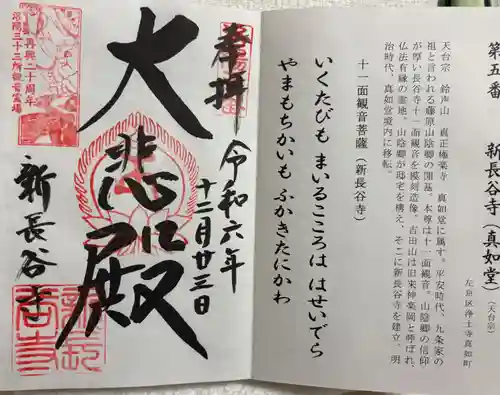 第五番　新長谷寺（真如堂）（天台宗）
左京区浄土寺真如町
天台宗　鈴声山　真正極楽寺　真如堂に属す。平安時代、九条家の
祖と言われる藤原山陰卿の開基。本尊は十一面観音。山陰卿の信仰
が厚い長谷寺十一面観音を模刻造像。吉田山は旧来神楽岡と呼ばれ、
仏法有縁の霊地。山陰卿が邸宅を構え、そこに新長谷寺を建立。明
治時代、真如堂境内に移転。
十一面観音菩薩（新長谷寺）
いくたびも　まいるこころは　はせいでら
やまもちかいも　ふかきたにかわ
奉拝
令和六年
十二月廿三日
大悲殿
再興二十周年
洛陽三十三所観音霊場
新長谷寺
新長谷寺